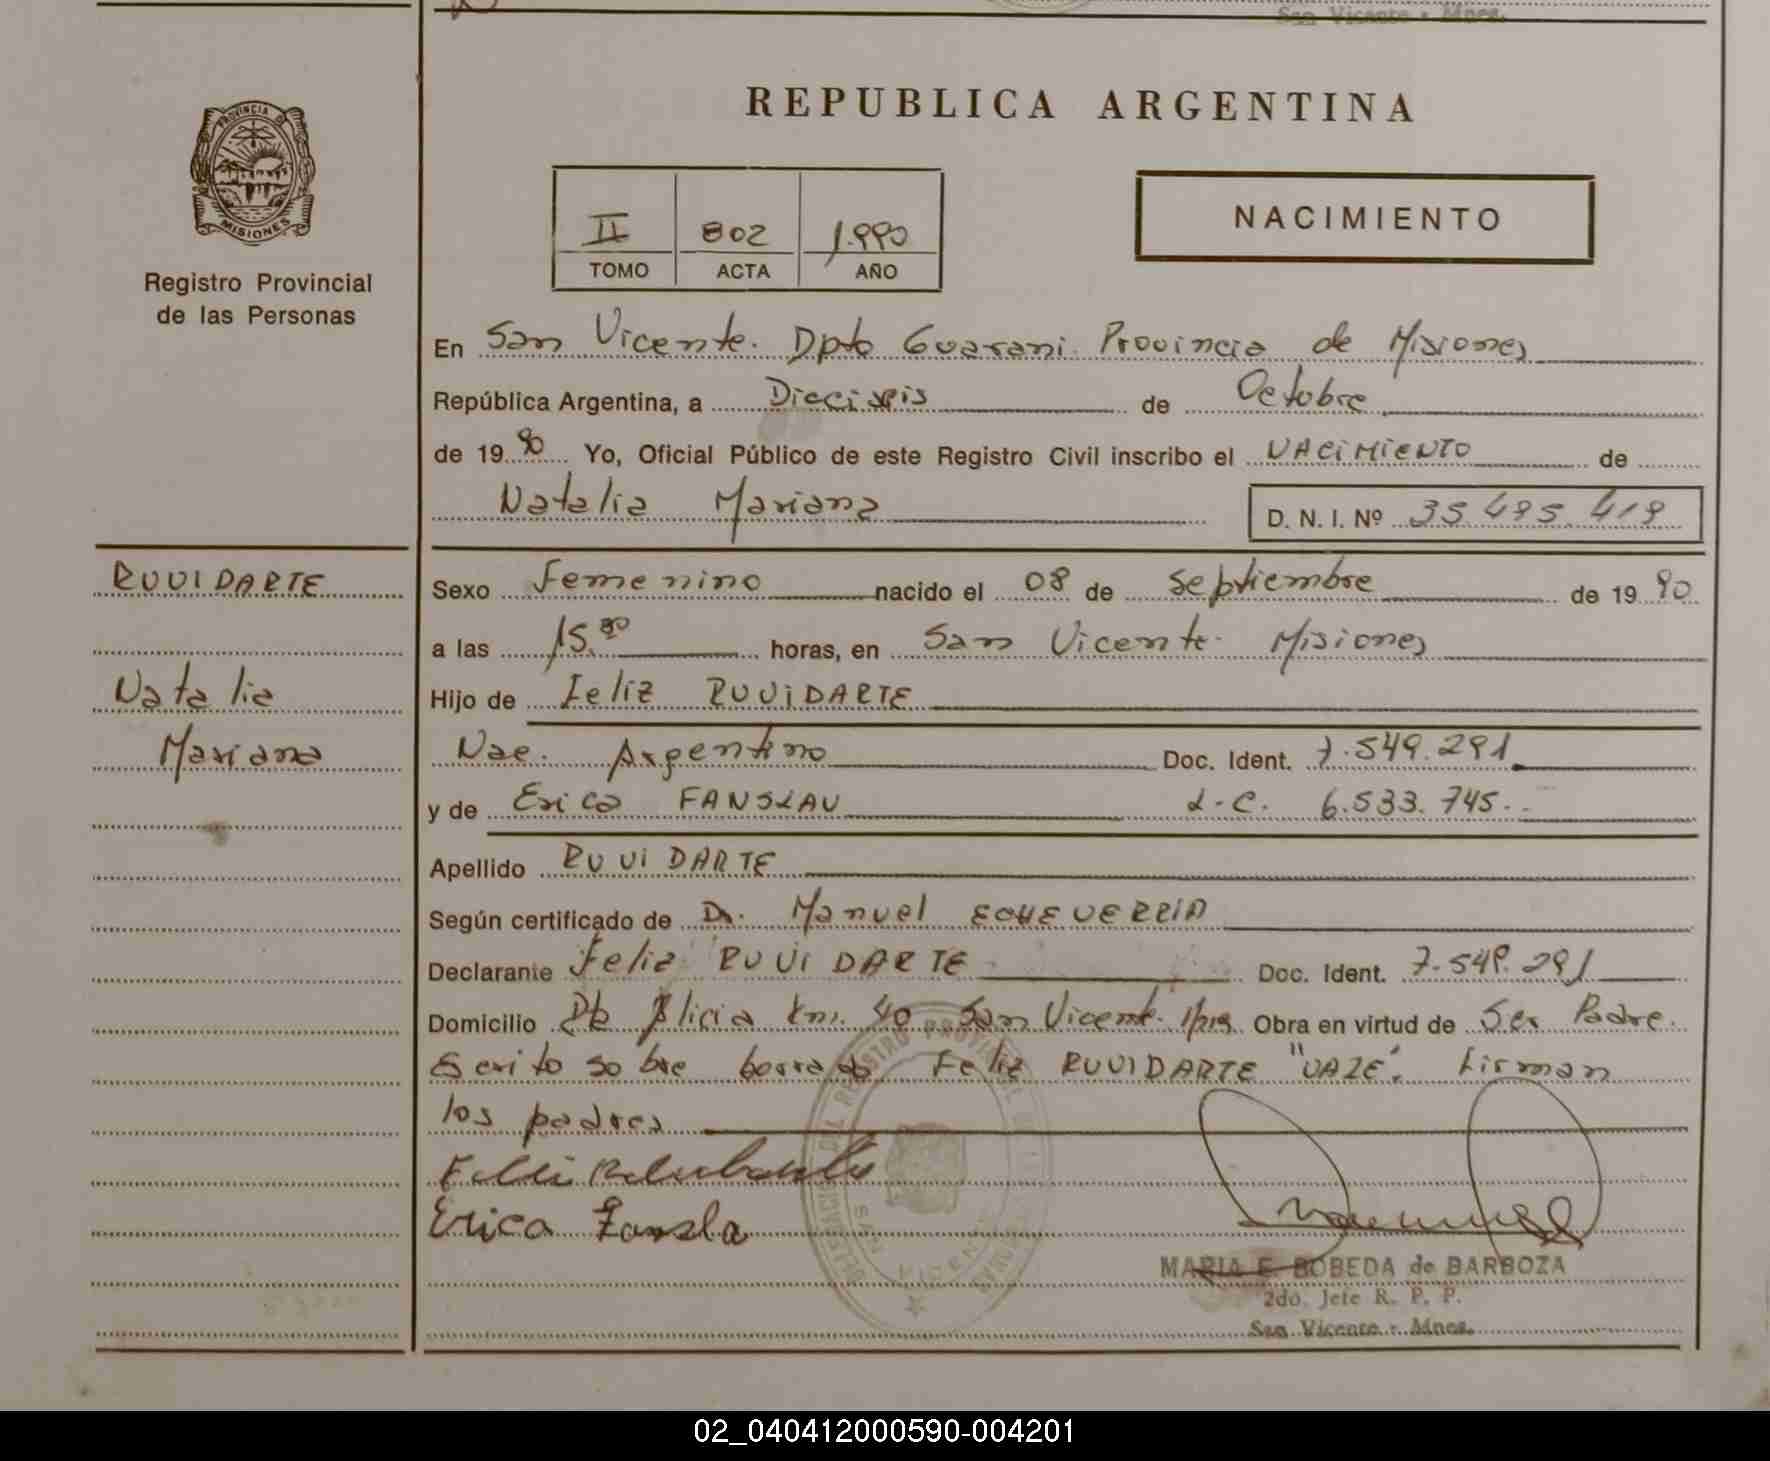 San Vicente - Mnes.
REPUBLICA ARGENTINA
PROVINCIA DE
MISIONES
Registro Provincial
de las Personas
II 802 1.990
TOMO ACTA AÑO
NACIMIENTO
En San Vicente. Dpto Guarani. Provincia de Misiones
República Argentina, a Dieciseis de Octubre
de 1990 Yo, Oficial Público de este Registro Civil inscribo el NACIMIENTO de
Natalia Mariana D. N. I. Nº 35.495.419
RUVIDARTE
Natalia
Mariana
Sexo Femenino nacido el 08 de Septiembre de 1990
a las 15.30 horas, en San Vicente. Misiones
Hijo de Feliz RUVIDARTE
Nac. Argentino Doc. Ident. 7.549.291
y de Erica FANSLAU L.C. 6.533.745.
Apellido RUVIDARTE
Según certificado de Dr. Manuel ECHEVERRIA
Declarante Feliz RUVIDARTE Doc. Ident. 7.549.291
Domicilio Pto Alicia Km. 40 San Vicente. Obra en virtud de Ser Padre.
Escrito sobre borrado Feliz RUVIDARTE "VALE". Firman
los padres
Erica Fansla
SAN VICENTE
MARIA E. BOBEDA de BARBOZA
2do. Jefe R. P. P.
San Vicente - Mnes.
02_040412000590-004201